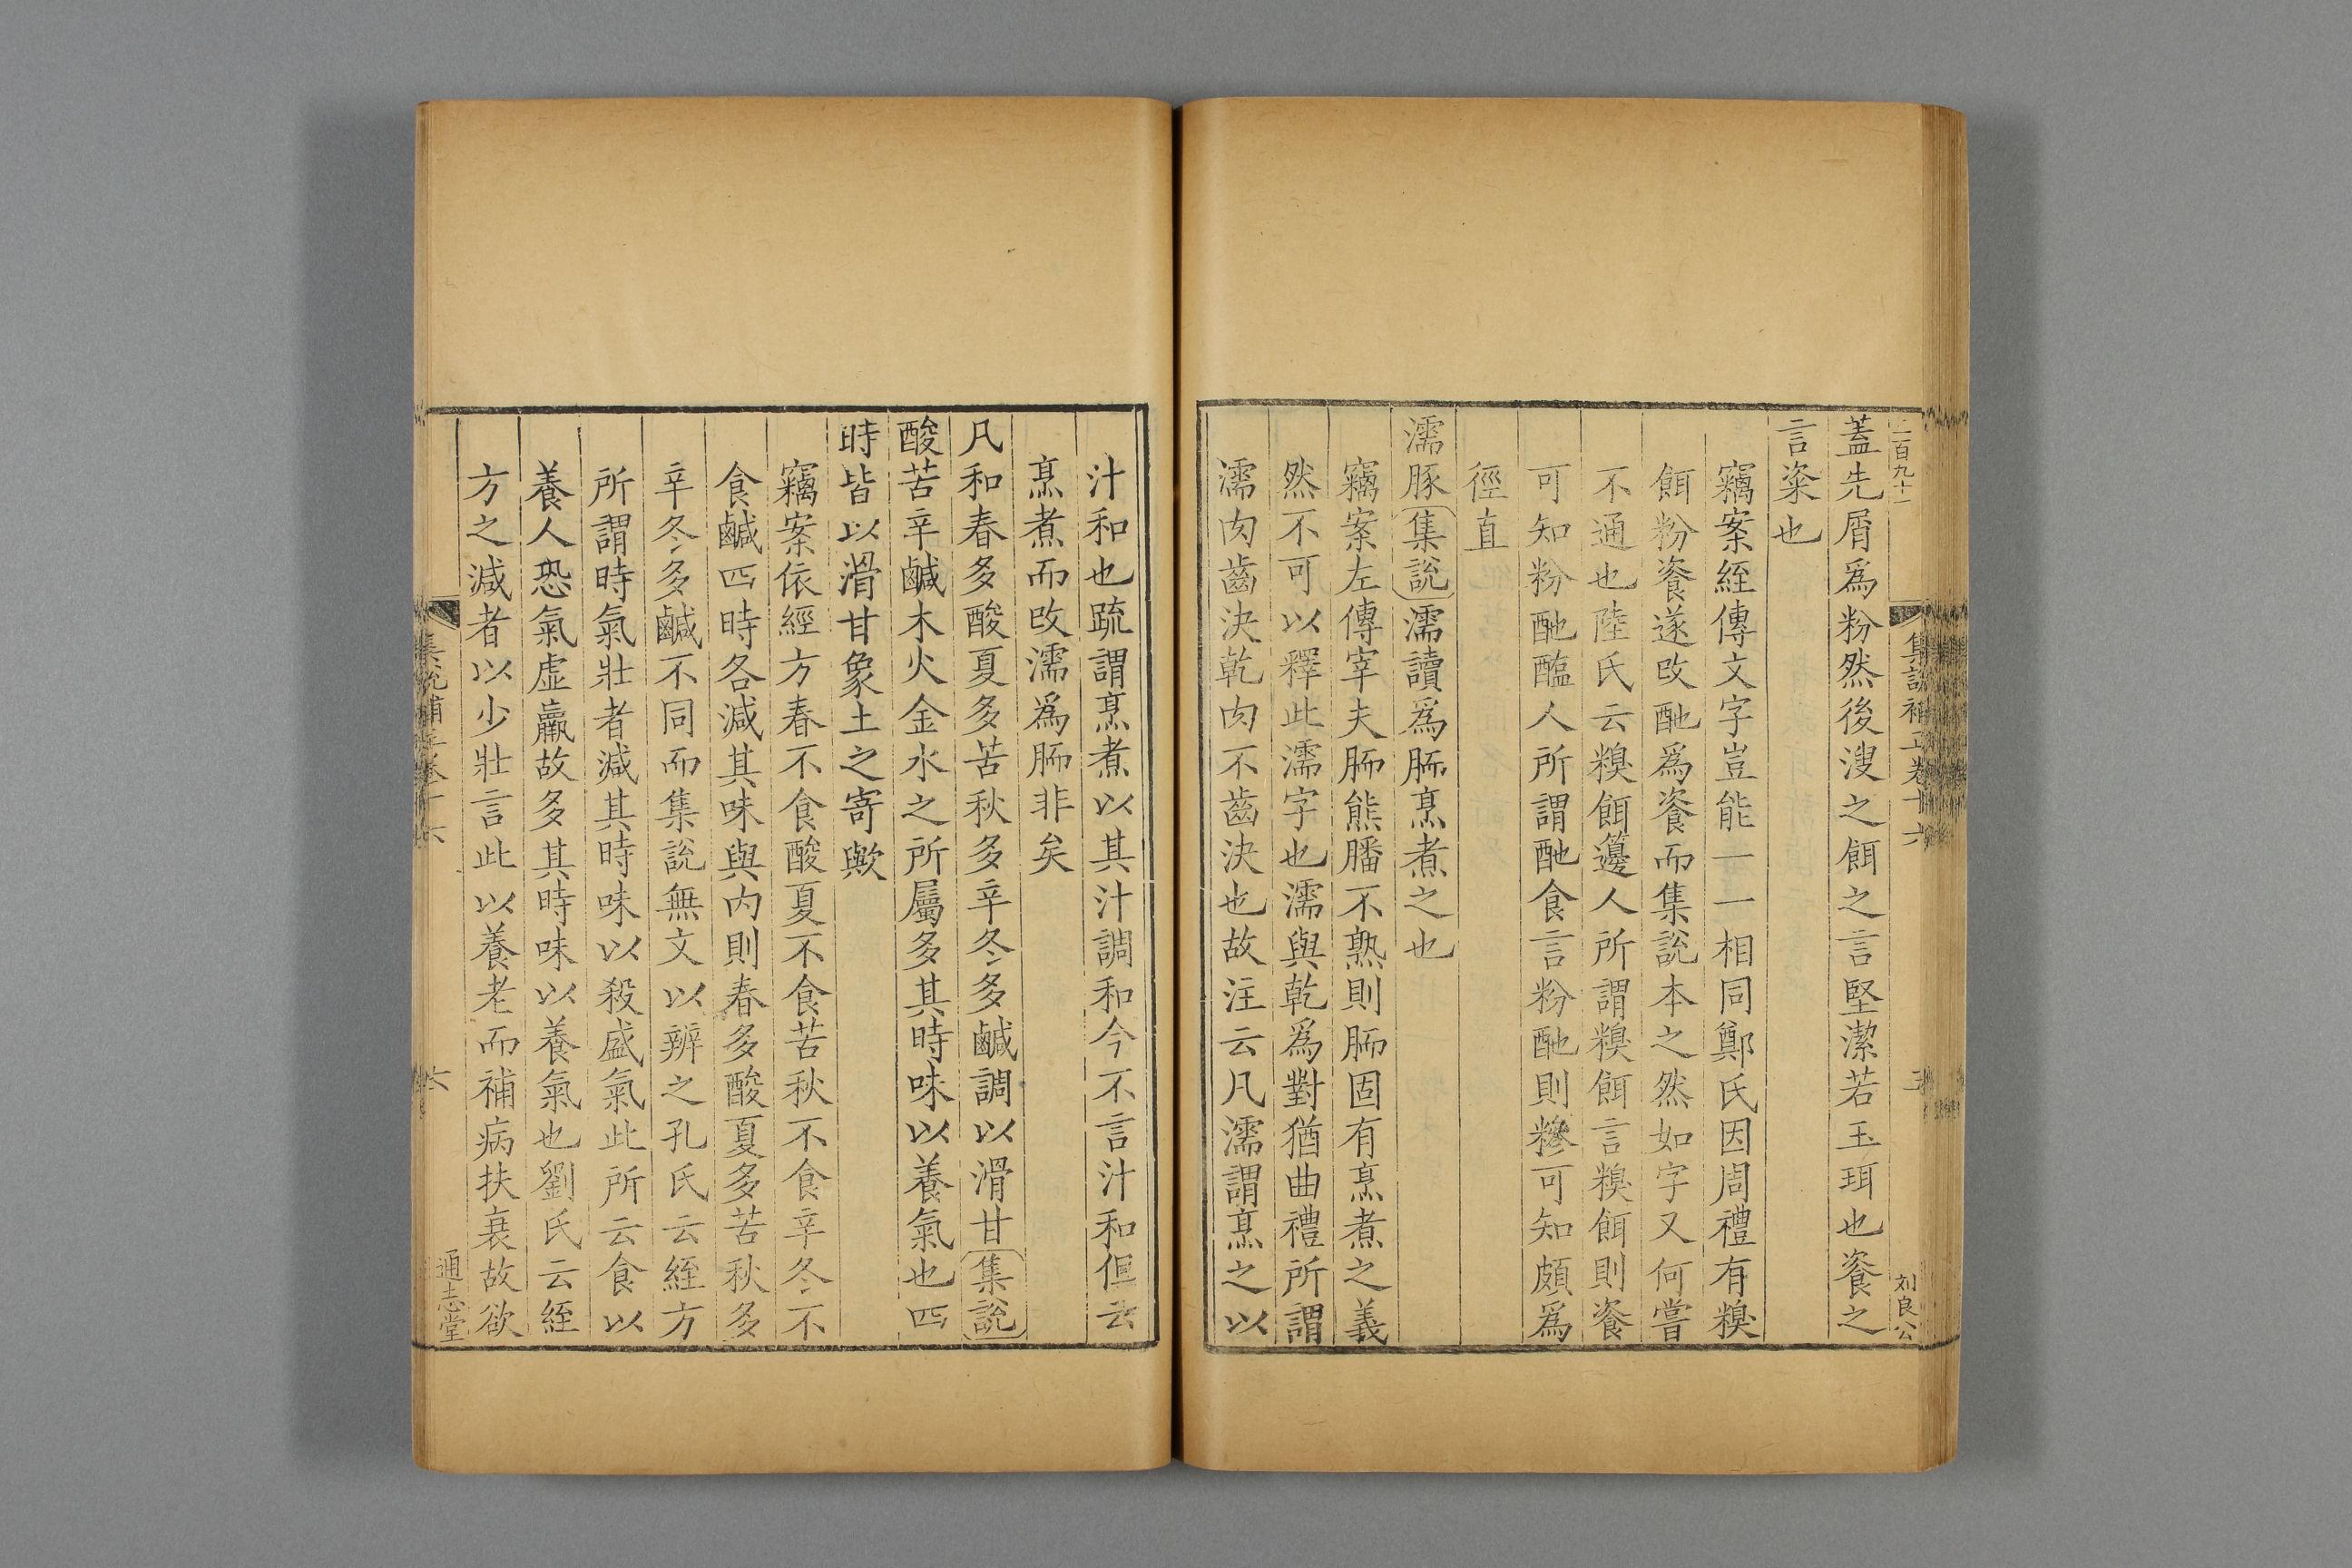 二百九十一
集說補正卷十六
五
刘良公
蓋先屑爲粉然後溲之餌之言堅潔若玉珥也餈之
言粢也
竊案經傳文字豈能一一相同鄭氏因周禮有糗
餌粉餈遂改酏爲餈而集說本之然如字又何嘗
不通也陸氏云糗餌籩人所謂糗餌言糗餌則餈
可知粉酏醢人所謂酏食言粉酏則糝可知頗爲
徑直
濡豚集說濡讀爲胹烹煮之也
竊案左傳宰夫胹熊膰不熟則胹固有烹煮之義
然不可以釋此濡字也濡與乾爲對猶曲禮所謂
濡肉齒決乾肉不齒決也故注云凡濡謂烹之以
汁和也疏謂烹煮以其汁調和今不言汁和但云
烹煮而改濡爲胹非矣
凡和春多酸夏多苦秋多辛冬多鹹調以滑甘集說
酸苦辛鹹木火金水之所屬多其時味以養氣也四
時皆以滑甘象土之寄歟
竊案依經方春不食酸夏不食苦秋不食辛冬不
食鹹四時各減其味與內則春多酸夏多苦秋多
辛冬多鹹不同而集說無文以辨之孔氏云經方
所謂時氣壯者減其時味以殺盛氣此所云食以
養人恐氣虛羸故多其時味以養氣也劉氏云經
方之減者以少壯言此以養老而補病扶衰故欲
集說補正卷十六
六
通志堂